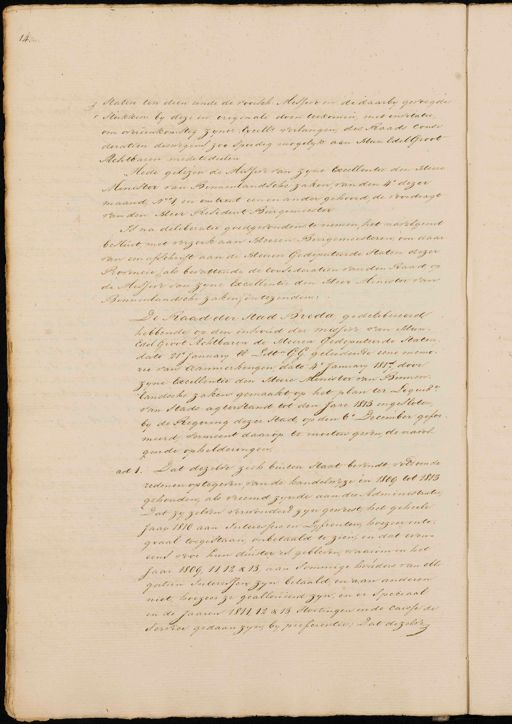 14.
Staten ten dien einde de voorsch. Missive en de daarby gevoegde
Stukken by deze in originali doen toekomen, met invitatie
om overeenkomstig zyner Excell: verlangen, des Raads Consi
deratien deswegens zoo spoedig mogelyk aan Hun EdelGroot
Achtbaren mede te deelen.
Mede gelezen de Missive van zyne Excellentie den Heere
Minister van Binnenlandsche zaken, van den 4e dezer
maand, No 1 en omtrent een en ander gehoord, de voordragt
van den Heer President Burgemeester
Is na deliberatie goedgevonden te nemen het navolgend
besluit met verzoek aan Heeren Burgemeesteren, om daar
van een afschrift aan de Heeren Gedeputeerde Staten dezer
Provincie, als bevattende de Consideratien van den Raad op
de Missive van zyne Excellentie den Heer Minister van
Binnenlandsche zaken, intezenden:
De Raad der Stad Breda, gedelibereerd
hebbende op den inhoud der missive van Hun
Edel Groot Achtbaren de Heeren Gedeputeerde Staten,
dato 21e January geleidende eene memo
rie van aanmerkingen, dato 4e January 1817, door
zyne Excellentie den Heere Minister van Binnen
landsche zaken gemaakt op het plan ter Liquidn
van Stads agterstand tot den Jare 1813 ingesloten,
by de Regering dezer Stad, op den 6e December gefor
meerd, vermeent daarop te moeten geven, de navol
gende ophelderingen;
ad 1. Dat dezelve zich buiten Staat bevindt
redenen optegeven van de handelwyze in 1809 tot 1813
gehouden, als vreemd zynde aan de Administratie,
Dat zy zelven verwonderd zyn geweest, het geheele
Jaar 1810 aan Interessen en Lyfrenten, hoezeer inte-
graal toegestaan, onbetaald te zien, en dat even-
eens voor hun duister is gebleven, waarom in het
Jaar 1809, 11 12 & 13. aan Sommige houders van Obli
gatien Interessen zyn betaald, en aan anderen
niet, hoezeer ze geallloueerd zyn, en er Speciaal
in de Jaaren 1811, 12 & 13 Stortingen in de Caisse de
Service gedaan zyn, by preferentie; Dat dezelve